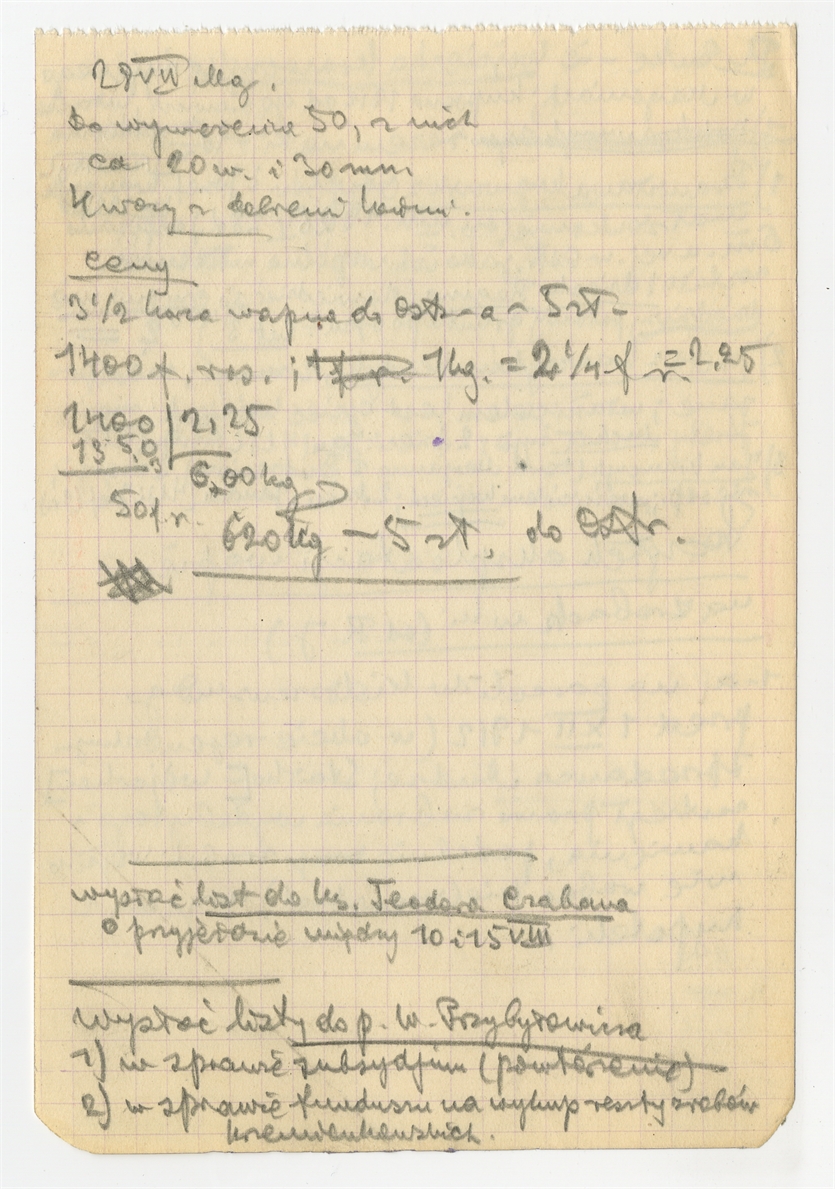 29 VII Mg.
Do wymierzenia 50, z nich
ca 20 w. i 30 mm
4 wozy z dobremi końmi.
ceny
3 1/2 korca wapna do Ostr-a - 5 zł-
1400 f. ros. ; 1 kg. = 2 1/4 f r. = 2,25
1400 | 2,25
1350
6,00 kg
50 f. r.
620 kg - 5 zł, do Ostr.
wysłać list do ks. Teodora Czabana
o przyjeździe między 10 i 15 VIII
wysłać listy do p. W. Przybyłowicza
1) w sprawie subsydjum (powtórzenie)
2) w sprawie funduszu na wykup reszty zrobów
krzemionkowskich.